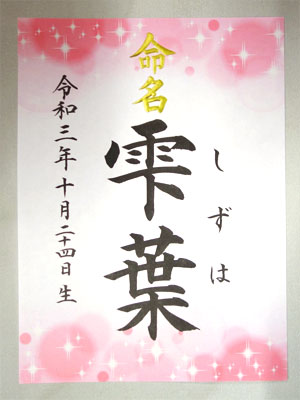 命名
しずは
雫葉
令和三年十月二十四日生